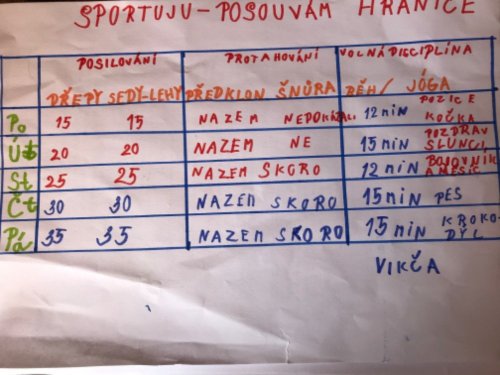 SPORTUJU-POSOUVÁM HRANICE
POSILOVÁNÍ PROTAHOVÁNÍ VOLNÁ DISCIPLÍNA
DŘEPY SEDY-LEHY PŘEDKLON ŠŇŮRA BĚH/ JÓGA
Po 15 15 NAZEM NEDOKÁŽU 12 min POZICE KOČKA
Út 20 20 NAZEM NE 15 min POZDRAV SLUNCI
St 25 25 NAZEM SKORO 12 min BOJOVNÍK A MĚSÍC
Čt 30 30 NAZEM SKORO 15 min PES
Pá 35 35 NAZEM SKORO 15 min KROKODÝL
VIKČA